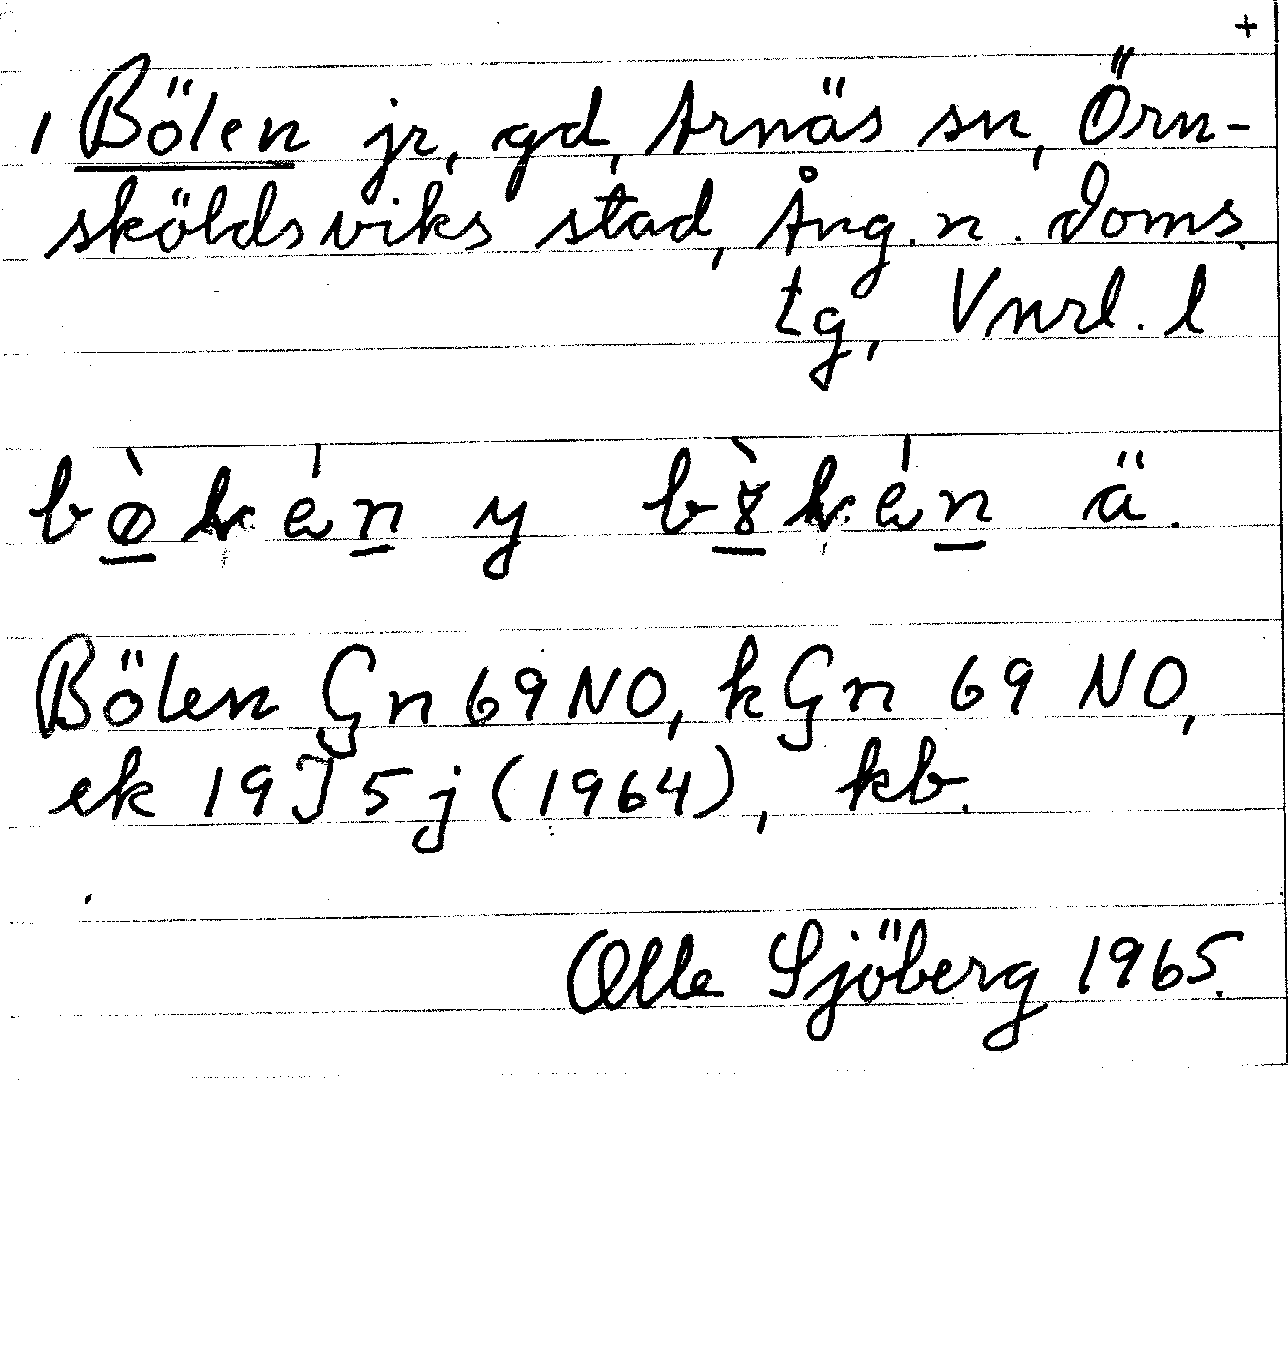 +
1 Bölen jr, gd, Arnäs sn, Örn-
sköldsviks stad, Ång. n. doms.
tg, Vnrl. l
y ä.
Bölen Gn 69 NO, kGn 69 NO,
ek 19 J 5 j (1964), kb.
Olle Sjöberg 1965.